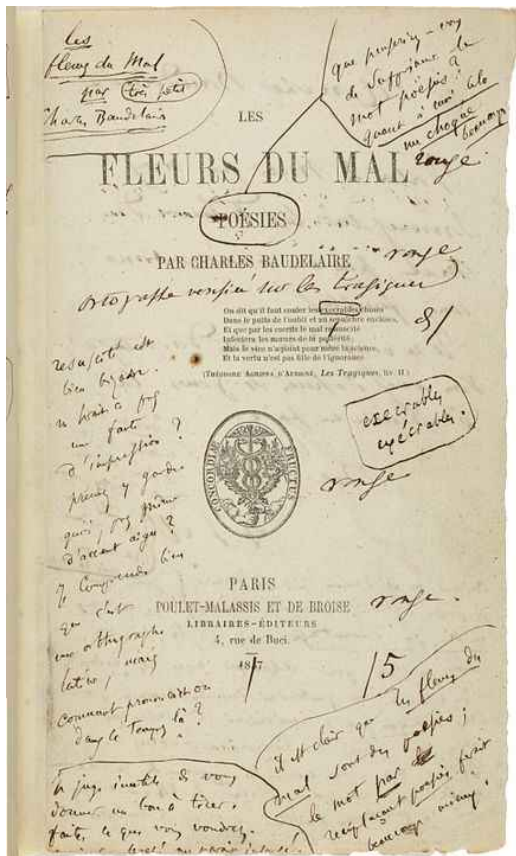 les
fleurs du Mal
par très petit
Charles Baudelaire
que penseriez-vous
de supprimer le
mot poésies?
quant à moi cela
me choque
beaucoup
LES
FLEURS DU MAL
rouge
POÉSIES
PAR CHARLES BAUDELAIRE
rouge
ortographe vérifiée sur les tragiques
On dit qu'il faut couler les execrables choses
Dans le puits de l'oubli et au sepulchre encloses,
Et que par les escrits le mal resuscité
Infectera les mœurs de la postérité;
Mais le vice n'a point pour mère la science,
Et la vertu n'est pas fille de l'ignorance.
(THÉODORE AGRIPPA D'AUBIGNÉ, Les Tragiques, liv. II.)
resuscité est
bien bizarre.
ne serait-ce pas
une faute
d'impression?
prenez y garde
quoi, pas même
d'accent aigu?
Je comprends bien
que c'est
une orthographe
latine, mais
comment prononçait-on
dans le temps là?
execrables
exécrables.
CONCORDIÆ FRUCTUS
rouge
PARIS
POULET-MALASSIS ET DE BROISE
rouge.
LIBRAIRES-ÉDITEURS
4, rue de Buci.
1857
/5
il est clair que les fleurs du
mal sont des poésies;
le mot par
remplaçant poésies ferait
beaucoup mieux.
Je juge inutile de vous
donner un bon à tirer.
faites ce que vous voudrez.